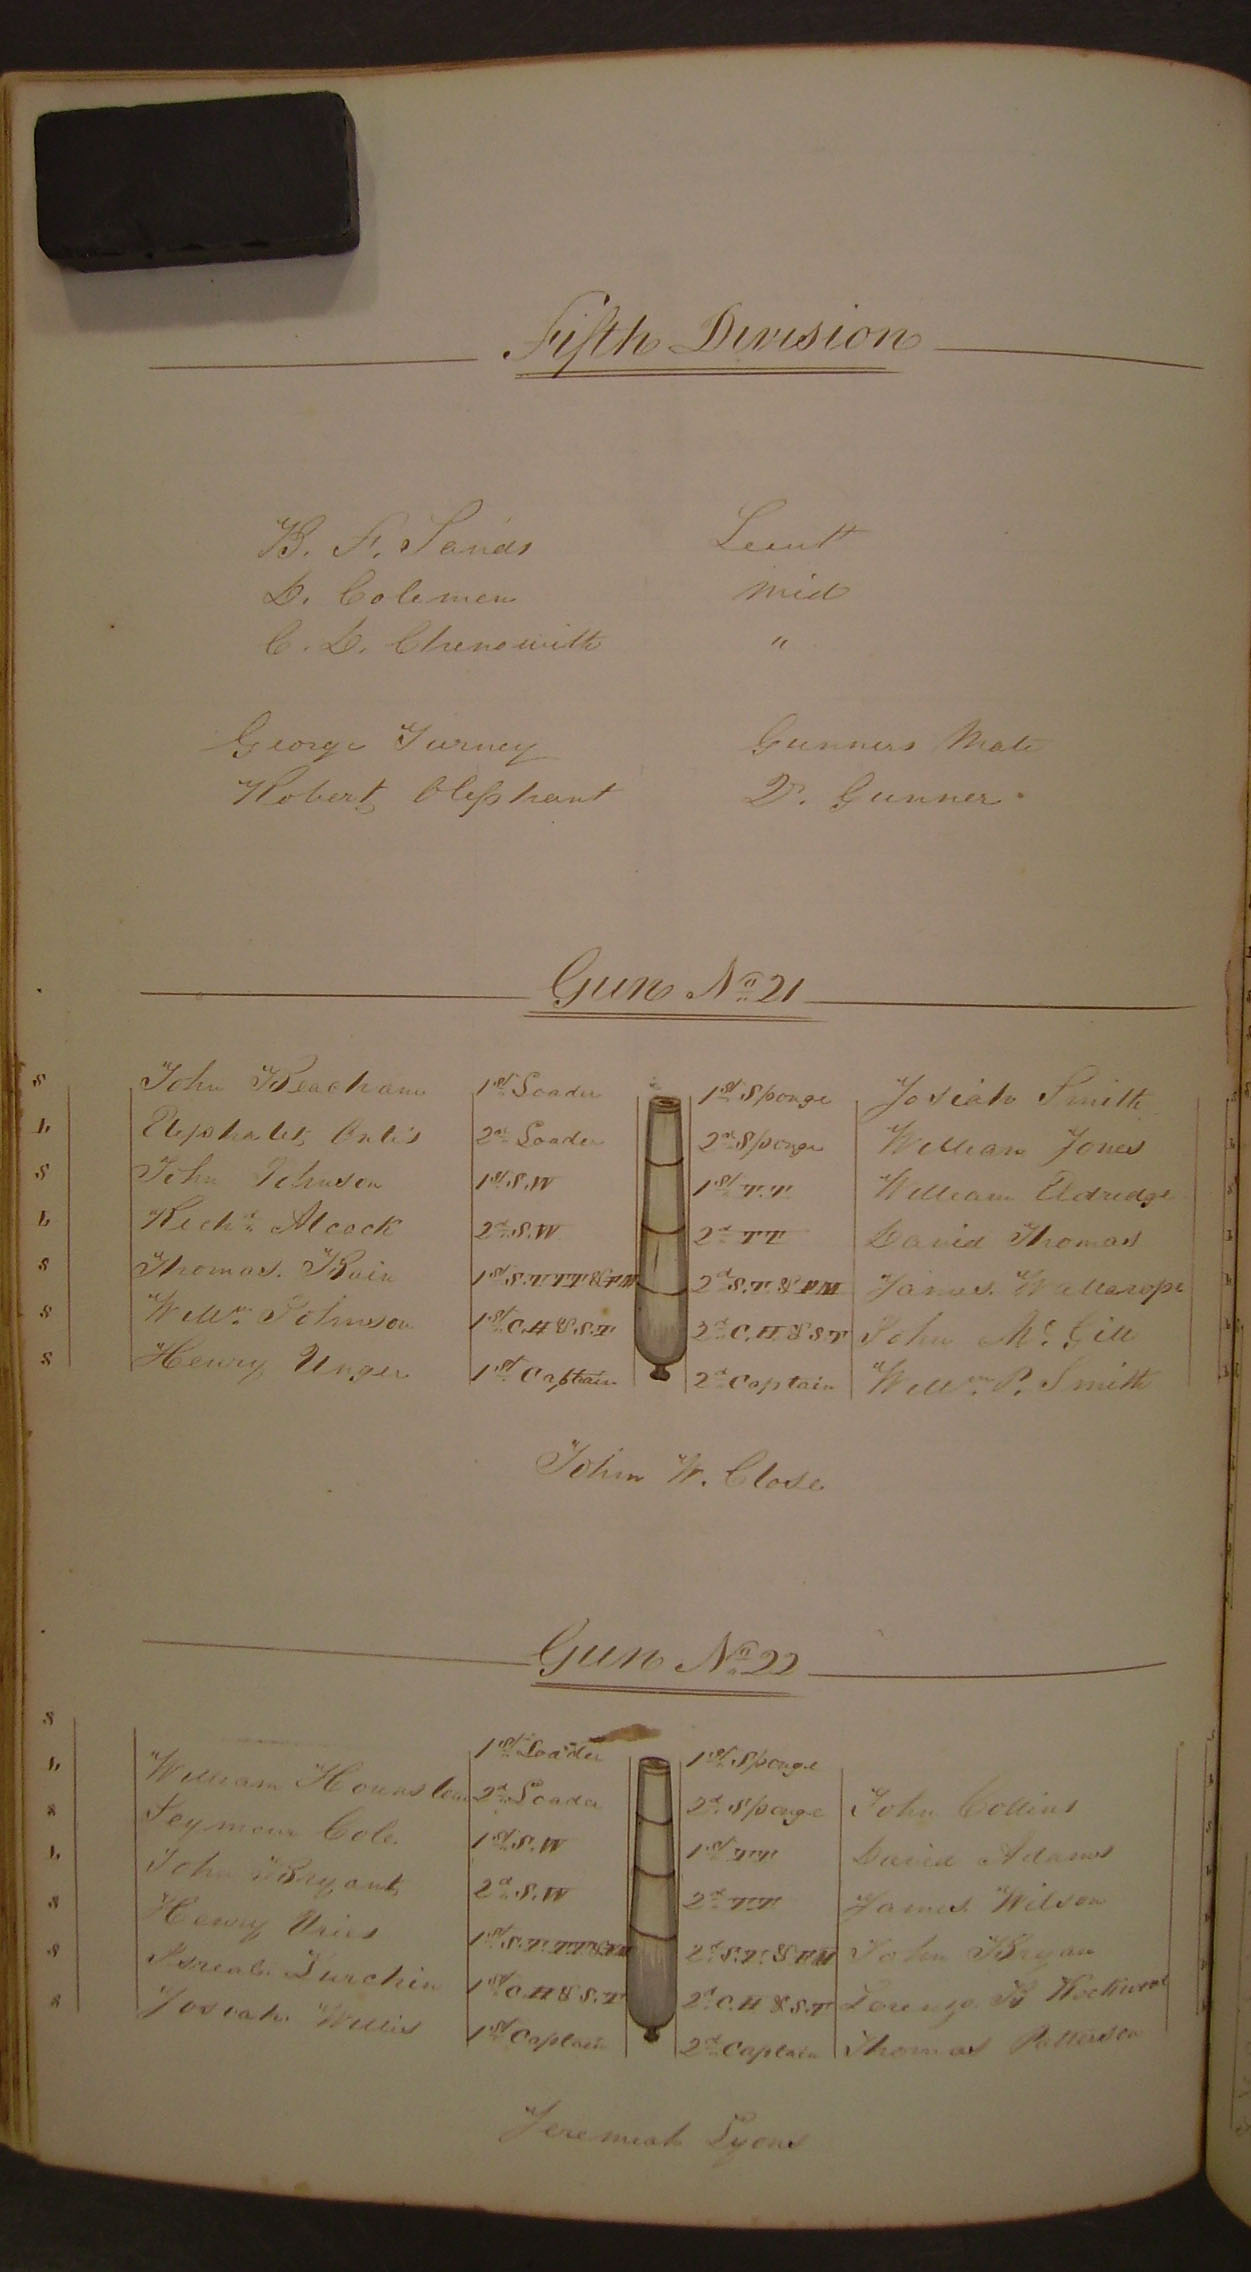 Fifth Division
B. F. Sands Lieut
D. Colemen Mid
C. D. Chenowith "
George Turney Gunners Mate
Robert Olephant Qr. Gunner
Gun No 21
S John Beacham 1st Loader 1st Sponge Josiah Smith
L Elephalet Ortis 2d Loader 2d Sponge William Jones
S John Johnson 1st S.W 1st T.T William Eldredge
L Richd Alcock 2d S.W 2d T.T David Thomas
S Thomas Bain 1st S.T.T.T & P.M 2d S.T. & P.M James Wallarope
S Willm Johnson 1st C.H & S.T 2d C.H & S.T John Mc Gill
S Henry Unger 1st Captain 2d Captain Willm P. Smith
John W. Close
Gun No 22
S 1st Loader 1st Sponge
L William Hounslow 2d Loader 2d Sponge John Collins
S Seymour Cole 1st S.W 1st T.T David Adams
L John Bryant 2d S.W 2d T.T James Wilson
S Henry Uries 1st S.T.T.T & P.M 2d S.T. & P.M John Bryan
S Isreal Durchin 1st C.H & S.T 2d C.H & S.T Lorenzo Rockwood
S Josiah Willis 1st Captain 2d Captain Thomas Patterson
Jeremiah Lyons